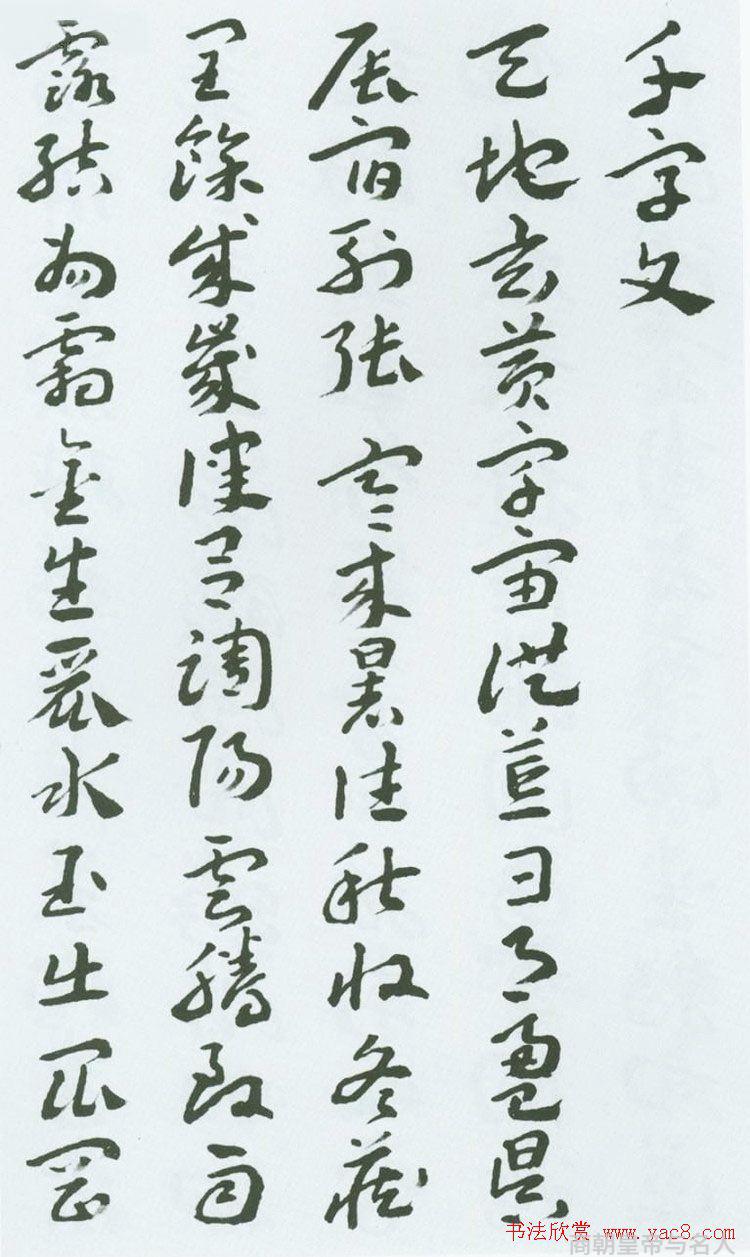 千字文
天地玄黄宇宙洪荒日月盈昃
辰宿列張寒来暑往秋收冬藏
閏餘成歲律吕調陽雲騰致雨
露結為霜金生麗水玉出崑岡
书法欣赏 www.yac8.com
商朝皇帝与名人